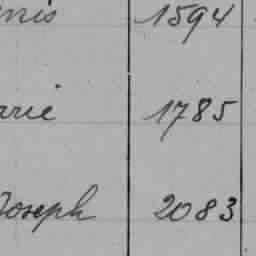 nis 1594
arie 1785
Joseph 2083